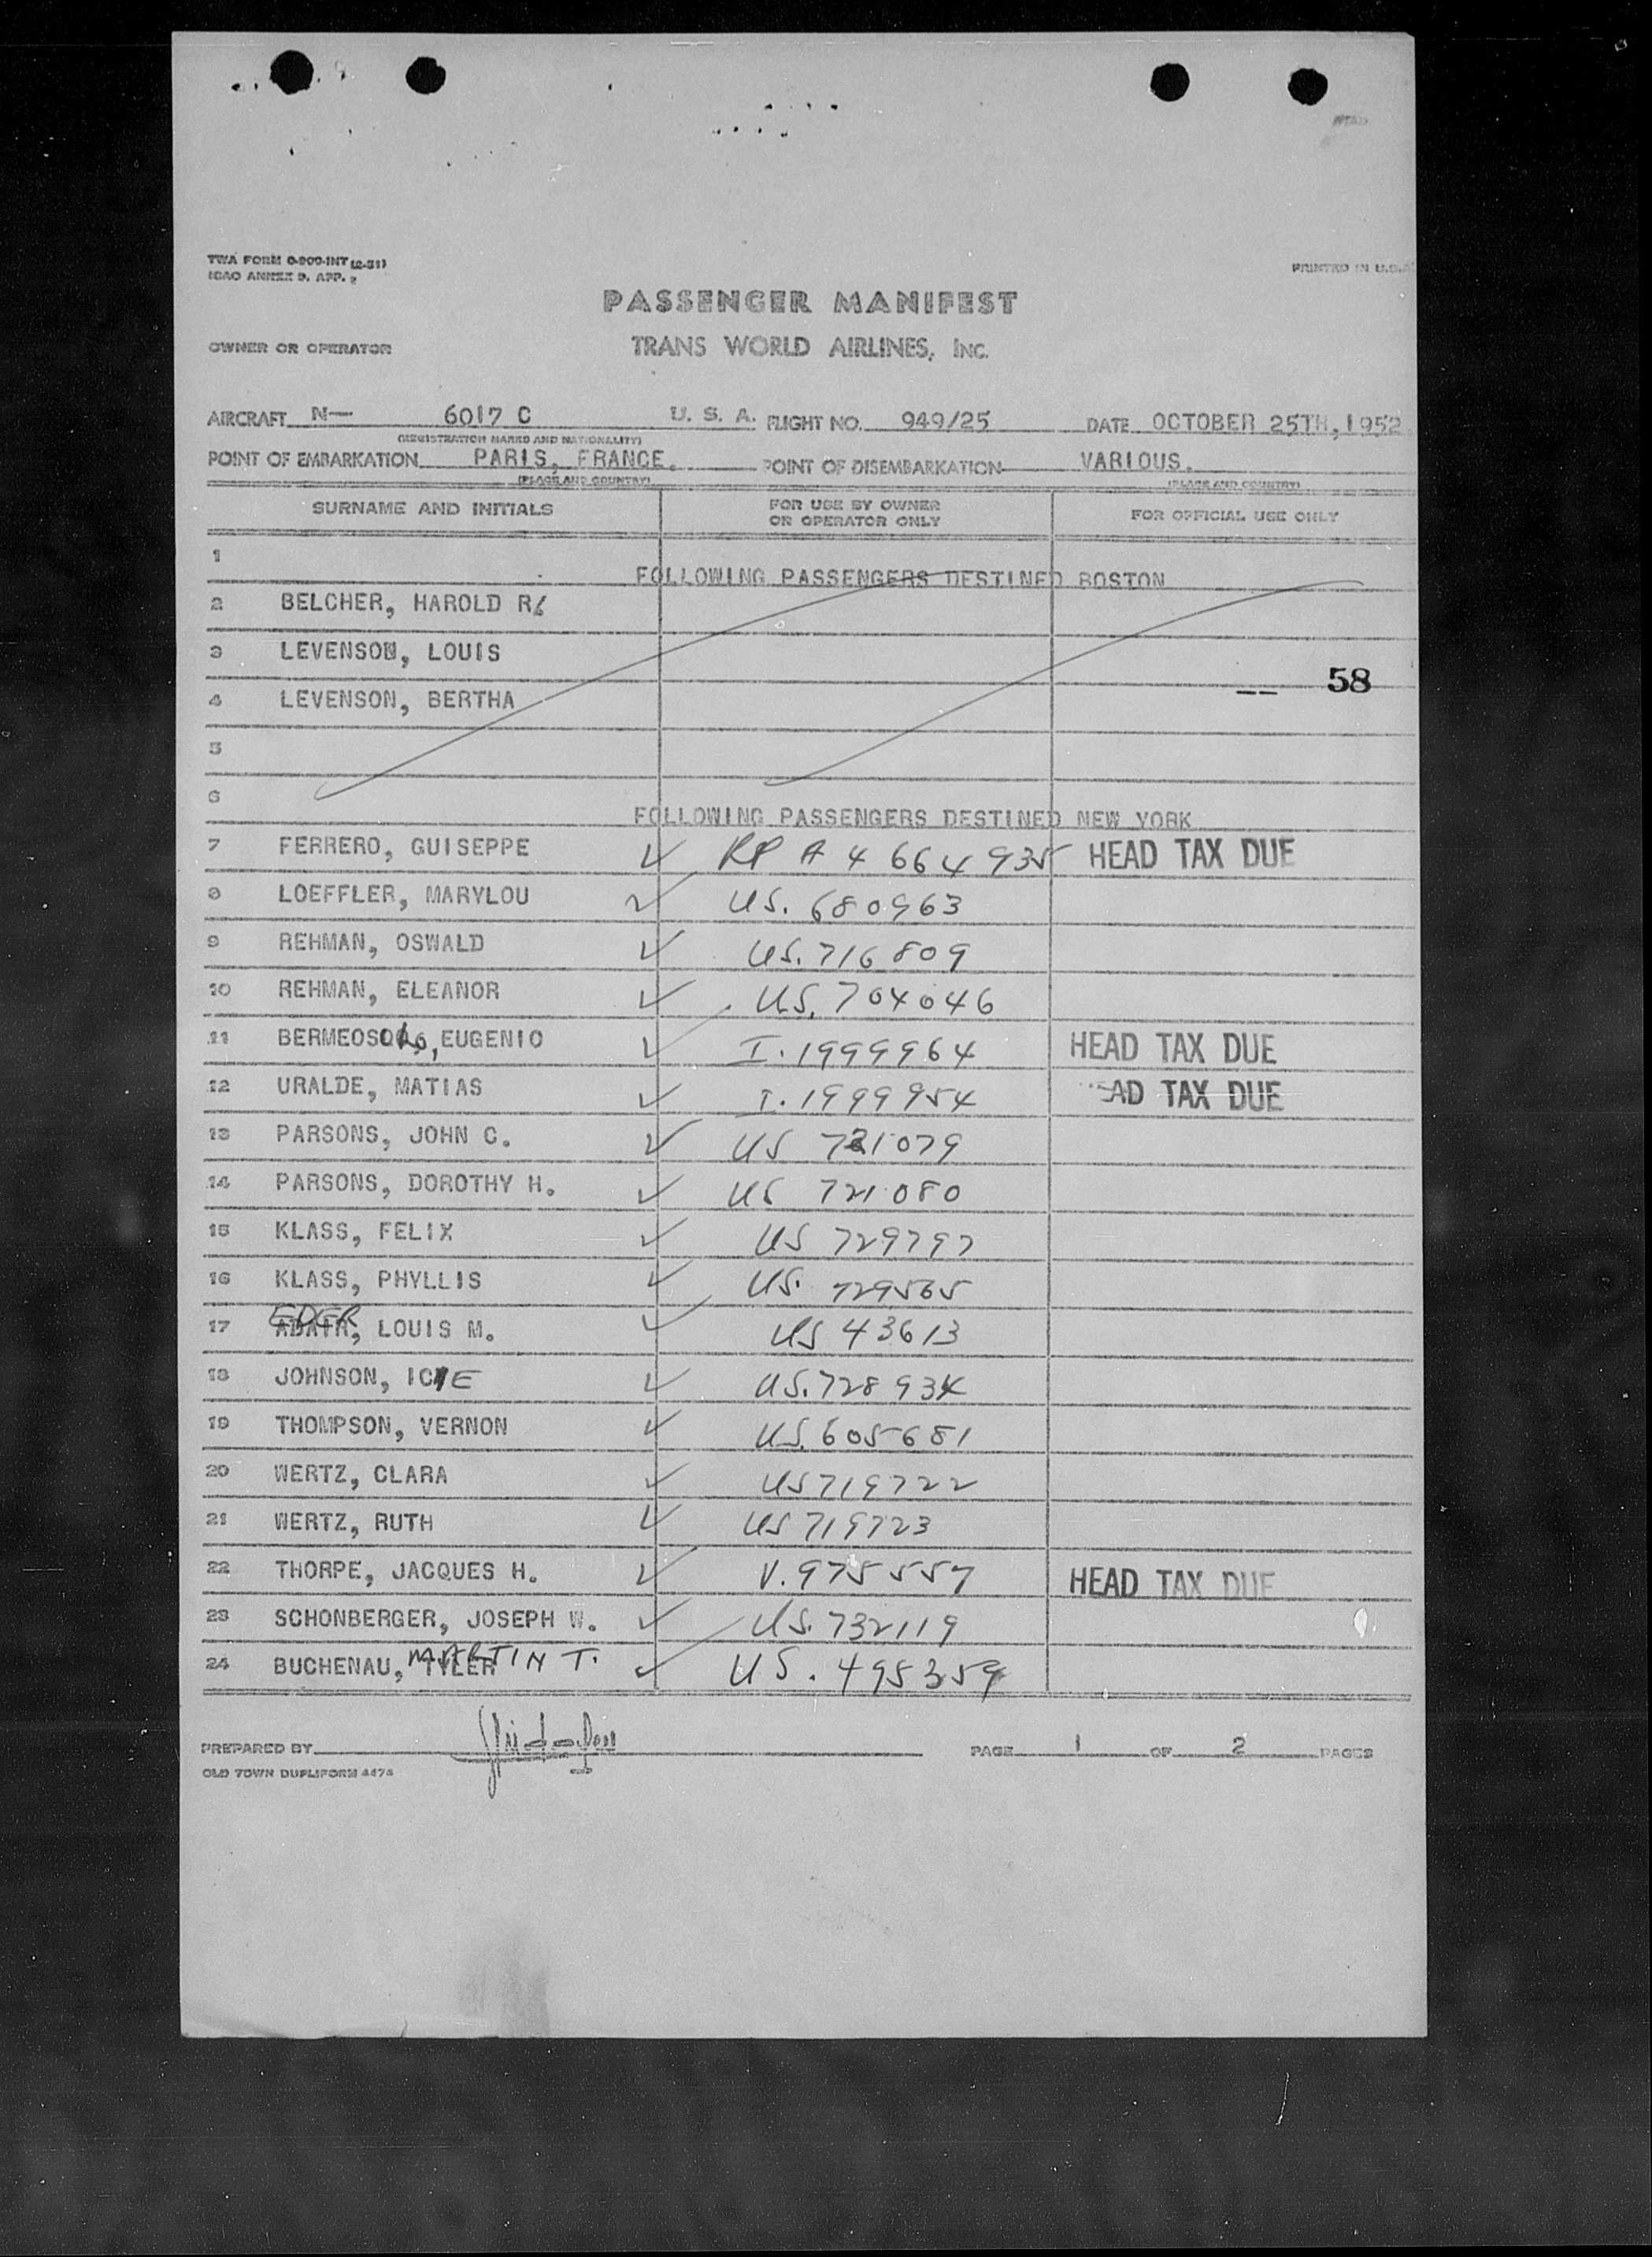 TWA FORM O-900-INT (2-51)
ICAO ANNEX 9. APP. 2
PRINTED IN U.S.A.
PASSENGER MANIFEST
OWNER OR OPERATOR TRANS WORLD AIRLINES, INC.
AIRCRAFT N— 6017 C U. S. A. FLIGHT NO. 949/25 DATE OCTOBER 25TH, 1952
(REGISTRATION MARKS AND NATIONALITY)
POINT OF EMBARKATION PARIS, FRANCE. POINT OF DISEMBARKATION VARIOUS.
(PLACE AND COUNTRY) (PLACE AND COUNTRY)
SURNAME AND INITIALS FOR USE BY OWNER OR OPERATOR ONLY FOR OFFICIAL USE ONLY
1 FOLLOWING PASSENGERS DESTINED BOSTON
2 BELCHER, HAROLD R
3 LEVENSON, LOUIS
58
4 LEVENSON, BERTHA
5
6 FOLLOWING PASSENGERS DESTINED NEW YORK
7 FERRERO, GUISEPPE RP A 4 664 935 HEAD TAX DUE
8 LOEFFLER, MARYLOU US. 680963
9 REHMAN, OSWALD US. 716809
10 REHMAN, ELEANOR US. 704046
11 BERMEOSOLO, EUGENIO I. 1999964 HEAD TAX DUE
12 URALDE, MATIAS I. 1999954 AD TAX DUE
13 PARSONS, JOHN C. US 721079
14 PARSONS, DOROTHY H. US 721080
15 KLASS, FELIX US 729797
16 KLASS, PHYLLIS US. 729565
EDER
17 ADAIR, LOUIS M. US 43613
18 JOHNSON, ICIE US. 728934
19 THOMPSON, VERNON US. 605681
20 WERTZ, CLARA US 719722
21 WERTZ, RUTH US 719723
22 THORPE, JACQUES H. V. 975557 HEAD TAX DUE
23 SCHONBERGER, JOSEPH W. US. 732119
24 BUCHENAU, TYLER MARTIN T. US. 495359
PREPARED BY PAGE 1 OF 2 PAGES
OLD TOWN DUPLIFORM 4474